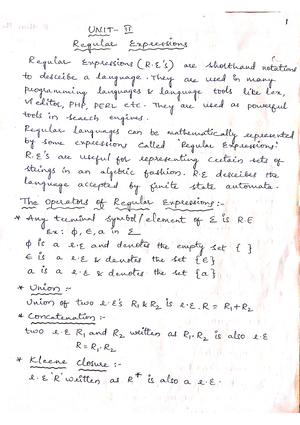 1
UNIT-II
Regular Expressions
Regular Expressions (R.E's) are shorthand notations
to describe a language. They are used in many
programming languages & language tools like lex,
vi editor, PHP, PERL etc. They are used as powerful
tools in search engines.
Regular languages can be mathematically represented
by some expressions called 'Regular Expressions'
R.E's are useful for representing certain sets of
strings in an algebric fashion. R.E describes the
language accepted by finite state automata.
The Operators of Regular Expressions:-
* Any terminal symbol/element of Σ is R.E
Ex: ϕ, Є, a in Σ
ϕ is a r.E and denotes the empty set { }
Є is a r.E & denotes the set {Є}
a is a r.E & denotes the set {a}
* Union :-
Union of two r.E's R₁ & R₂ is r.E. R = R₁+R₂
* Concatenation :-
two r.E R₁ and R₂ written as R₁.R₂ is also r.E
R = R₁.R₂
* Kleene closure :-
r.E 'R' written as R* is also a r.E.